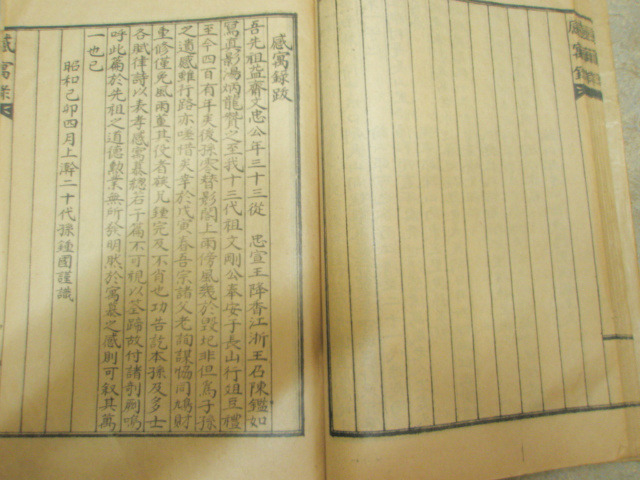 感寓錄跋
吾先祖益齋文忠公年三十三從 忠宣王降香江浙王召陳鑑如
寫眞影湯炳龍贊之至我十三代祖文剛公奉安于長山行祖互禮
至今四百有年矣後孫零替影閣上雨傍風幾於毀圮非但爲子孫
之遺感雖行路亦嗟惜矣幸於戊寅春吾宗諸父老詢謀協同鳩財
重修僅免風雨董其役者族兒鍾完及不肖也功告訖本孫及多士
各賦律詩以表孝感寓慕總若干篇不可視以筌蹄故付諸剞劂嗚
呼此篇於先祖之道德勳業無所發明然於寓慕之感則可敍其萬
一也已
昭和己卯四月上澣二十代孫鍾國謹識